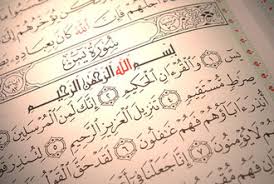 أَجَلُهُمْ فَإِنَّ
اللَّهَ كَانَ بِعِبَادِهِ
سُورَةُ يسٓ
بِسْمِ اللَّهِ الرَّحْمَٰنِ الرَّحِيمِ
يسٓ ١ وَالْقُرْءَانِ الْحَكِيمِ ٢ إِنَّكَ لَمِنَ الْمُرْسَلِينَ
صِرَٰطٍ مُّسْتَقِيمٍ ٤ تَنزِيلَ الْعَزِيزِ الرَّحِيمِ ٥ لِتُنذِرَ
أُنذِرَ ءَابَآؤُهُمْ فَهُمْ غَٰفِلُونَ ٦ لَقَدْ حَقَّ الْقَوْلُ
لَا يُؤْمِنُونَ ٧ إِنَّا جَعَلْنَا فِىٓ